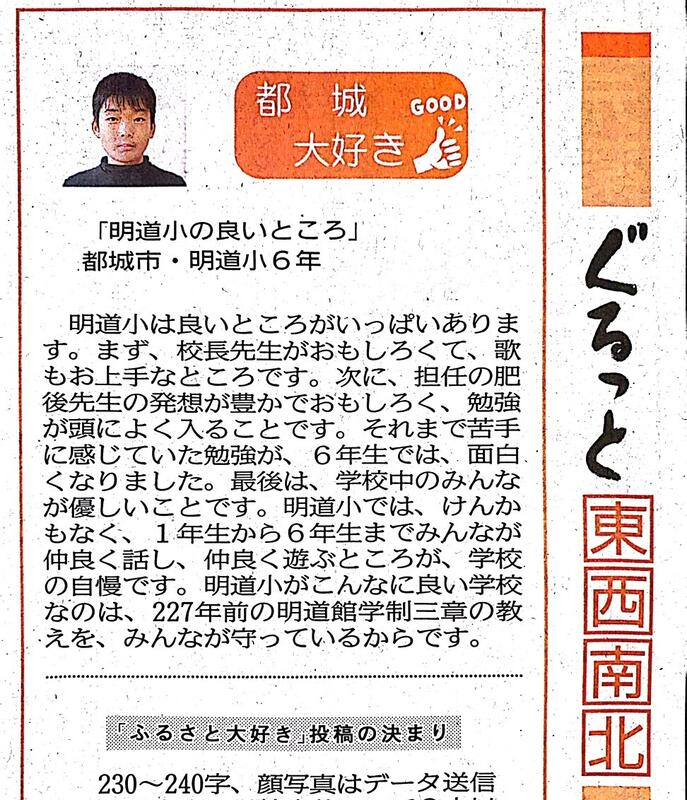 都城
大好き
GOOD
「明道小の良いところ」
都城市・明道小６年
明道小は良いところがいっぱいありま
す。まず、校長先生がおもしろくて、歌
もお上手なところです。次に、担任の肥
後先生の発想が豊かでおもしろく、勉強
が頭によく入ることです。それまで苦手
に感じていた勉強が、６年生では、面白
くなりました。最後は、学校中のみんな
が優しいことです。明道小では、けんか
もなく、１年生から６年生までみんなが
仲良く話し、仲良く遊ぶところが、学校
の自慢です。明道小がこんなに良い学校
なのは、227年前の明道館学制三章の教
えを、みんなが守っているからです。
「ふるさと大好き」投稿の決まり
230〜240字、顔写真はデータ送信
ぐるっと
東西南北